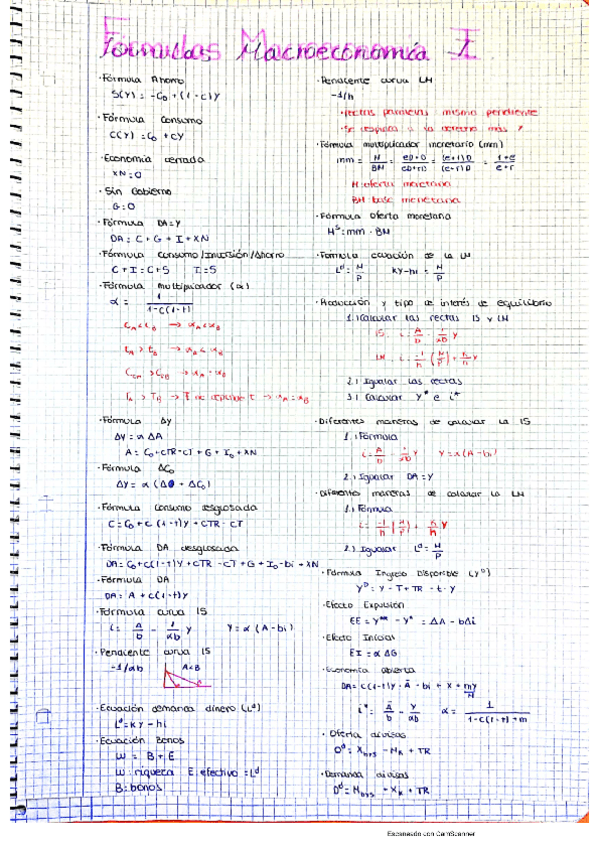 Fórmulas Macroeconomía I
· Fórmula Ahorro
S(Y) = -C₀ + (1-c)Y
· Fórmula Consumo
C(Y) = C₀ + cY
· Economía cerrada
XN = 0
· Sin Gobierno
G = 0
· Fórmula DA = Y
DA = C + G + I + XN
· Fórmula Consumo/Inversión/Ahorro
C + I = C + S   I = S
· Fórmula multiplicador (α)
α = 1 / 1-c(1-t)
C_A < C_B → α_A < α_B
t_A > t_B → α_A < α_B
· Fórmula ΔY
ΔY = α ΔA
A = C₀ + cTR - cT + G + I₀ + XN
· Fórmula ΔC₀
· Fórmula Consumo desglosada
C = C₀ + c(1-t)Y + cTR - cT
· Fórmula DA desglosada
DA = C₀ + c(1-t)Y + cTR - cT + G + I₀ - bi + XN
· Fórmula DA
DA = A + c(1-t)Y
· Fórmula curva IS
i = A/b - 1/αb Y   Y = α(A - bi)
· Pendiente curva IS
-1/αb   A < B
· Ecuación demanda dinero (Lᵈ)
Lᵈ = KY - hi
· Ecuación Bonos
W = B + E
W: riqueza E: efectivo = Lᵈ
B: bonos
· Pendiente curva LM
-1/h
· rectas paralelas misma pendiente
· Fórmula multiplicador monetario (mm)
M: oferta monetaria
BM: base monetaria
· Fórmula oferta monetaria
Mˢ = mm · BM
· Fórmula ecuación de la LM
Lᵈ = M/P   KY - hi = M/P
· Producción y tipo de interés de equilibrio
1.) Calcular las rectas IS y LM
2.) Igualar las rectas
3.) Calcular Y* e i*
· Diferentes maneras de calcular la IS
1.) Fórmula
Y = α(A - bi)
2.) Igualar DA = Y
· Diferentes maneras de calcular la LM
1.) Fórmula
2.) Igualar Lᵈ = M/P
· Fórmula Ingreso Disponible (Yᴰ)
Yᴰ = Y - T + TR - t · Y
· Efecto Expulsión
· Efecto Inicial
EI = α ΔG
· Economía abierta
α = 1 / 1-c(1-t)+m
· Oferta divisas
· Demanda divisas
Escaneado con CamScanner